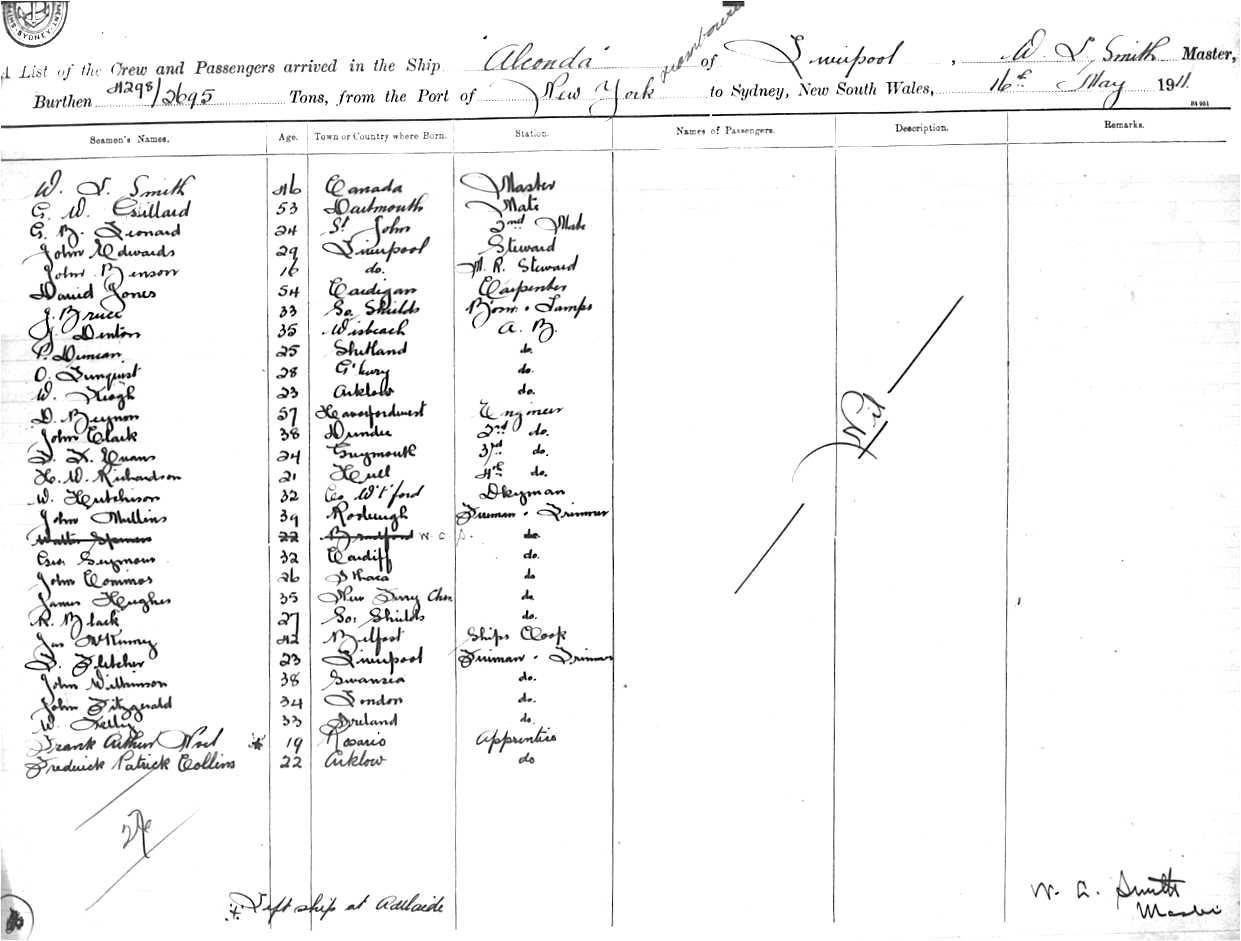 SYDNEY
A List of the Crew and Passengers arrived in the Ship "Alconda" of Liverpool, W. L. Smith Master,
Burthen 4298/2695 Tons, from the Port of New York to Sydney, New South Wales, 16th May 1911.
Seamen's Names. Age. Town or Country where Born. Station. Names of Passengers. Description. Remarks.
W. L. Smith 46 Canada Master
G. W. Gillard 53 Dartmouth Mate
G. B. Leonard 24 St John 2nd Mate
John Edwards 29 Liverpool Steward
John Benson 16 do. M. R. Steward
David Jones 54 Cardigan Carpenter
J. Bruce 33 So. Shields Bosn. & Lamps
J. Denton 35 Wisbeach A. B.
P. Duncan 25 Shetland do.
O. Lunquist 28 G'burg do.
W. Keogh 23 Arklow do.
D. Beynon 57 Haverfordwest Engineer
John Clark 38 Dundee 2nd do.
D. X. Evans 24 Guymouth 3rd do.
H. W. Richardson 21 Hull 4th do.
W. Hutchison 32 Co. W't'ford Dkyman
John Mullins 39 Fireman & Trimmer
Walter Spencer 22 Bradford W. C. do.
Geo. Seymour 32 Cardiff do.
John Commos 26 Ithaca do
James Hughes 35 New Ferry Ches do
R. Black 27 So. Shields do.
Jas McKinney 42 Belfast Ships Cook
D. Fletcher 23 Liverpool Fireman & Trimmer
John Wilkinson 38 Swansea do.
John Fitzgerald 34 London do.
W. Kelly 33 Ireland do.
Frank Arthur Noel * 19 Rosario Apprentice
Frederick Patrick Collins 22 Arklow do
Nil
* Left ship at Adelaide
W. L. Smith
Master